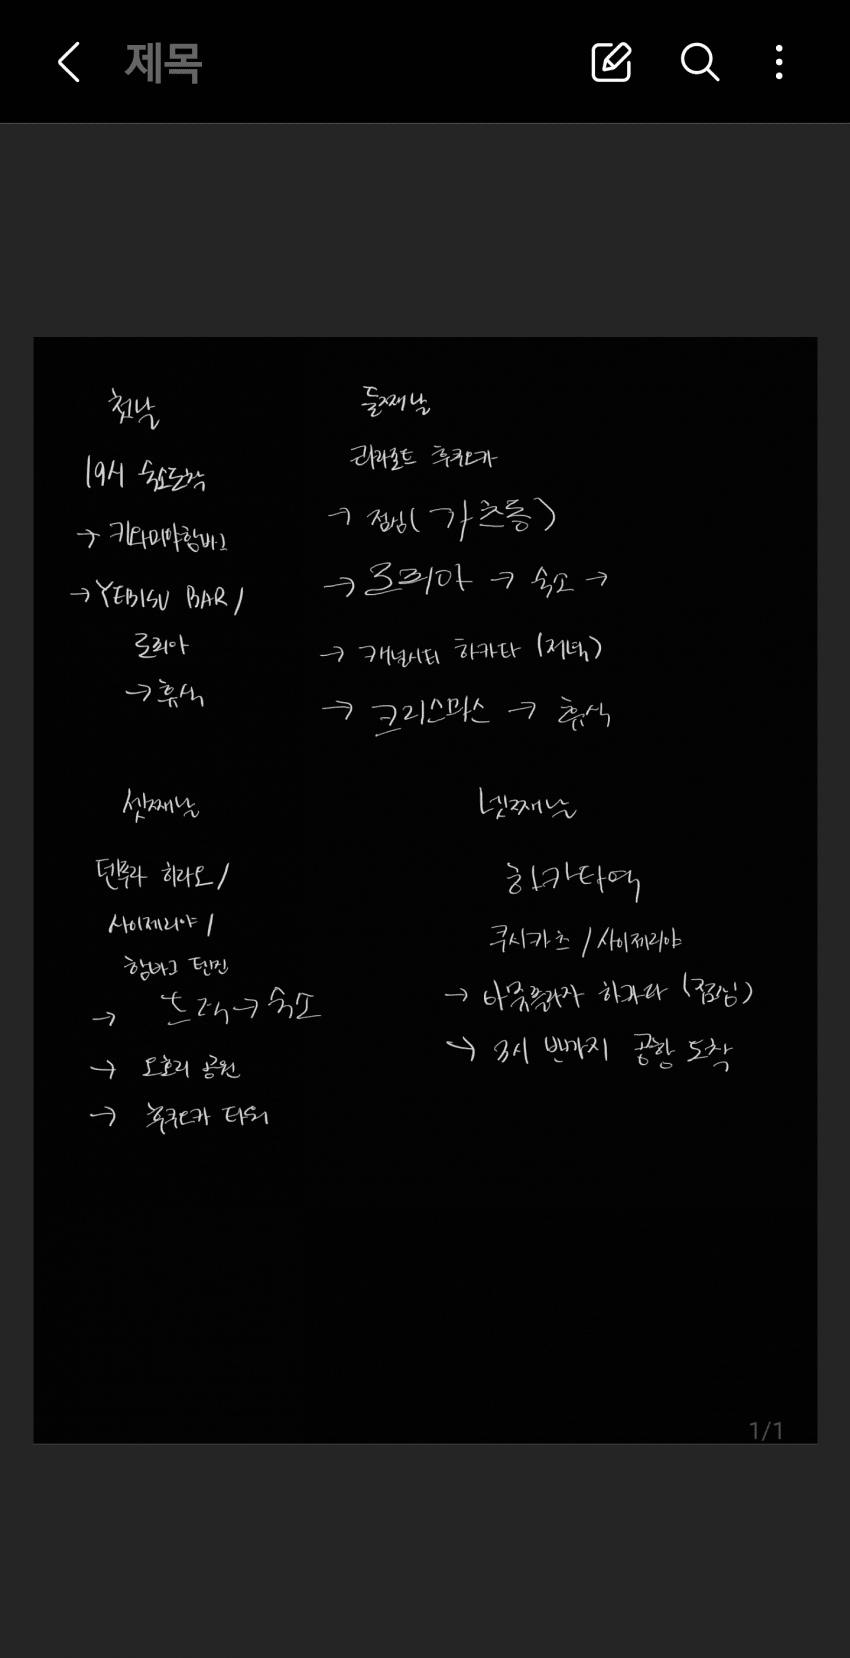 제목
첫날
19시 숙소도착
→ 키와미야함바그
→ YEBISU BAR /
로피아
→ 휴식
둘째날
라라포트 후쿠오카
→ 점심 (가츠동)
→ 로피아 → 숙소 →
→ 캐널시티 하카타 (저녁)
→ 크리스마스 → 휴식
셋째날
텐푸라 히라오 /
사이제리야 /
함바그 텐진
→ 숙소
→ 오호리 공원
→ 후쿠오카 타워
넷째날
하카타역
쿠시카츠 / 사이제리야
→ 아뮤플라자 하카타 (점심)
→ 3시 반까지 공항 도착
1/1